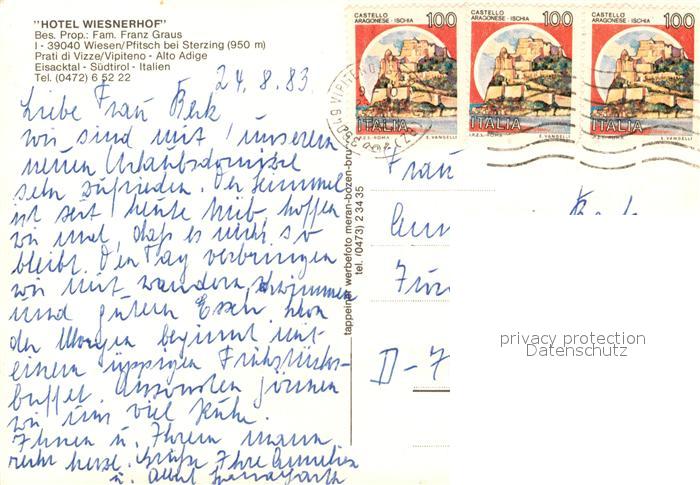 "HOTEL WIESNERHOF"
Bes. Prop.: Fam. Franz Graus
I - 39040 Wiesen/Pfitsch bei Sterzing (950 m)
Prati di Vizze/Vipiteno - Alto Adige
Eisacktal - Südtirol - Italien
Tel. (0472) 6 52 22
24.8.83
Liebe Frau Berk
wir sind mit unserem
neuen Urlaubsdomizil
sehr zufrieden. Der Himmel
ist seit heute trüb, hoffen
wir mal, daß es nicht so
bleibt. Den Tag verbringen
wir mit wandern, schwimmen
und gutem Essen. Schon
der Morgen beginnt mit
einem üppigen Frühstücks-
buffet. Ansonsten gönnen
wir uns viel Ruhe.
Ihnen u. Ihrem Mann
recht herzl. Grüße Ihre
u. Albert
tappeiner werbefoto meran-bozen-bru
tel. (0473) 2 34 35
CASTELLO
ARAGONESE - ISCHIA
100
ITALIA
I.P.Z.S. - ROMA E. VANGELLI
CASTELLO
ARAGONESE - ISCHIA
100
ITALIA
I.P.Z.S. - ROMA E. VANGELLI
CASTELLO
ARAGONESE - ISCHIA
100
ITALIA
I.P.Z.S. - ROMA E. VANGELLI
Frau
D-7
privacy protection
Datenschutz